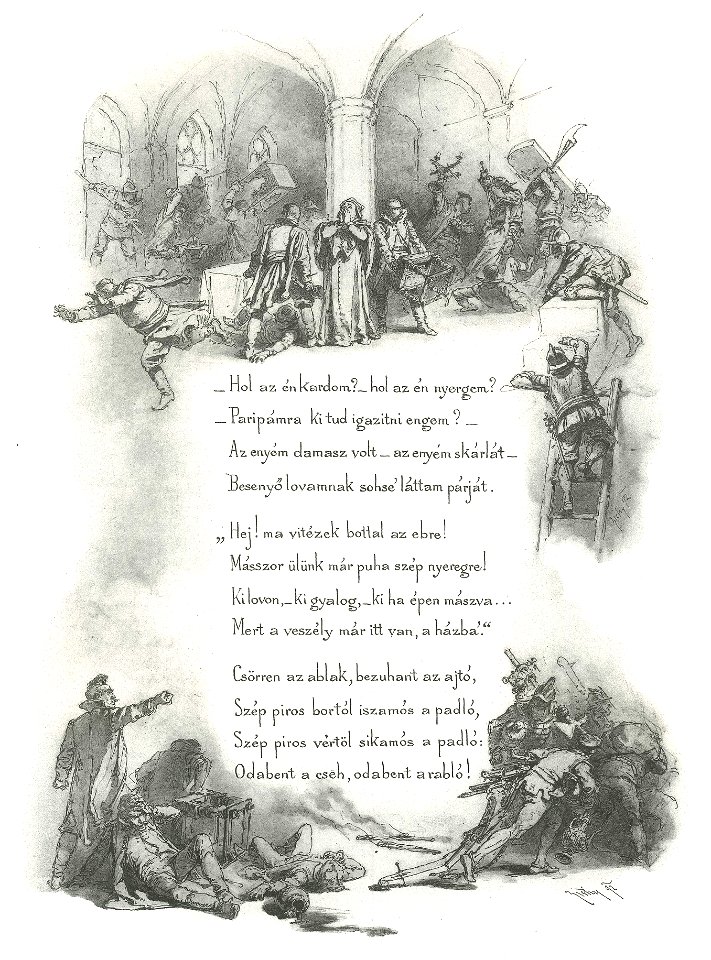 — Hol az én kardom? — hol az én nyergem?
— Paripámra ki tud igazitni engem? —
Az enyém damasz volt — az enyém skárlát —
Besenyő lovamnak sohse' láttam párját.
„Hej! ma vitézek bottal az ebre!
Másszor ülünk már puha szép nyeregre!
Ki lovon, — ki gyalog, — ki ha épen mászva...
Mert a veszély már itt van, a házba'."
Csörren az ablak, bezuhant az ajtó,
Szép piros bortól iszamós a padló,
Szép piros vértől sikamós a padló:
Odabent a cseh, odabent a rabló!